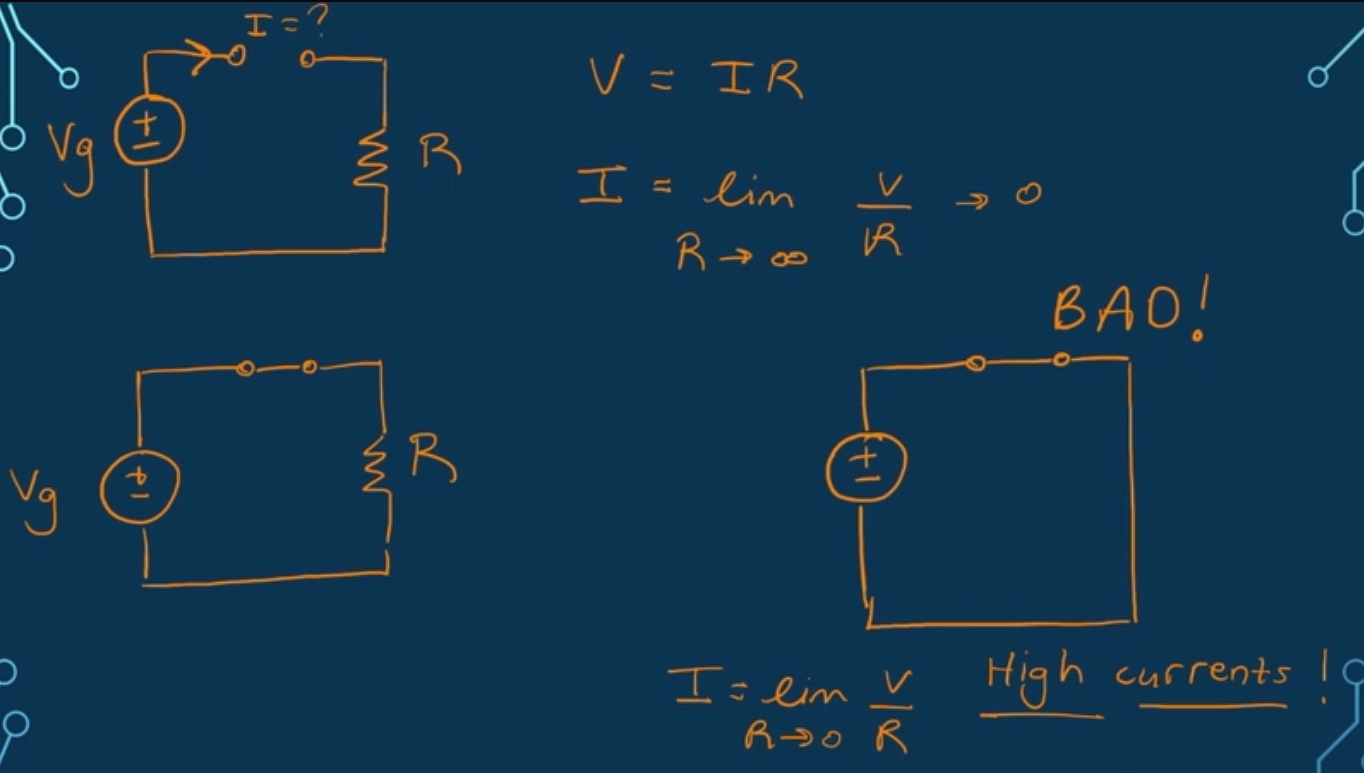 I = ?
Vg
+
-
R
V = IR
I = lim V/R → 0
R → ∞
BAD!
Vg
+
-
R
+
-
I = lim V/R
R → 0
High currents!